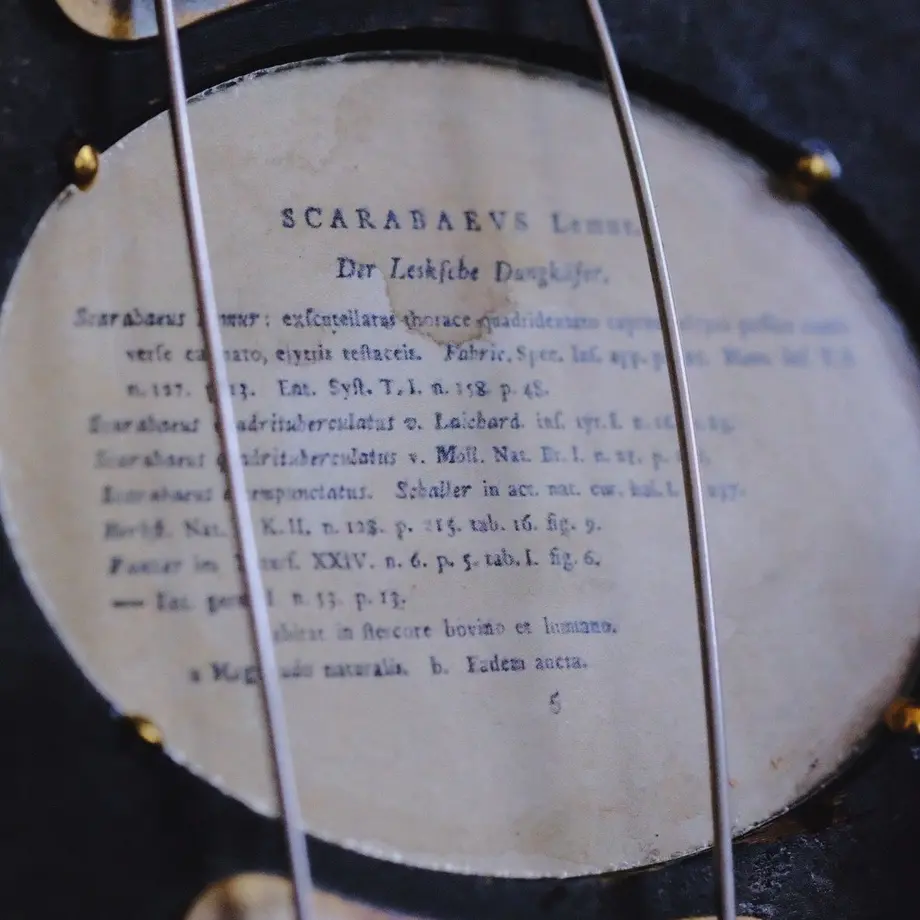 SCARABAEVS Lemur.
Der Leskſche Dungkäfer.
Scarabaeus Lemur: exſcutellatus thorace quadridentato
verſe carinato, elytris teſtaceis. Fabric. Spec. Inſ. app. p.
n. 127. p. 13. Ent. Syſt. T. I. n. 158. p. 48.
Scarabaeus quadrituberculatus v. Laichard. inſ. tyr. I. n.
Scarabaeus quadrituberculatus v. Moll. Nat. Br. I. n. 21. p.
Scarabaeus Schaller in act. nat. cur. hal. I.
Herbſt. Nat. K. II. n. 128. p. 215. tab. 16. fig. 9.
Panzer im Naturf. XXIV. n. 6. p. 5. tab. I. fig. 6.
— Ent. germ. I n. 53. p. 13.
Habitat in ſtercore bovino et humano.
a Magnitudo naturalis. b. Eadem aucta.
6